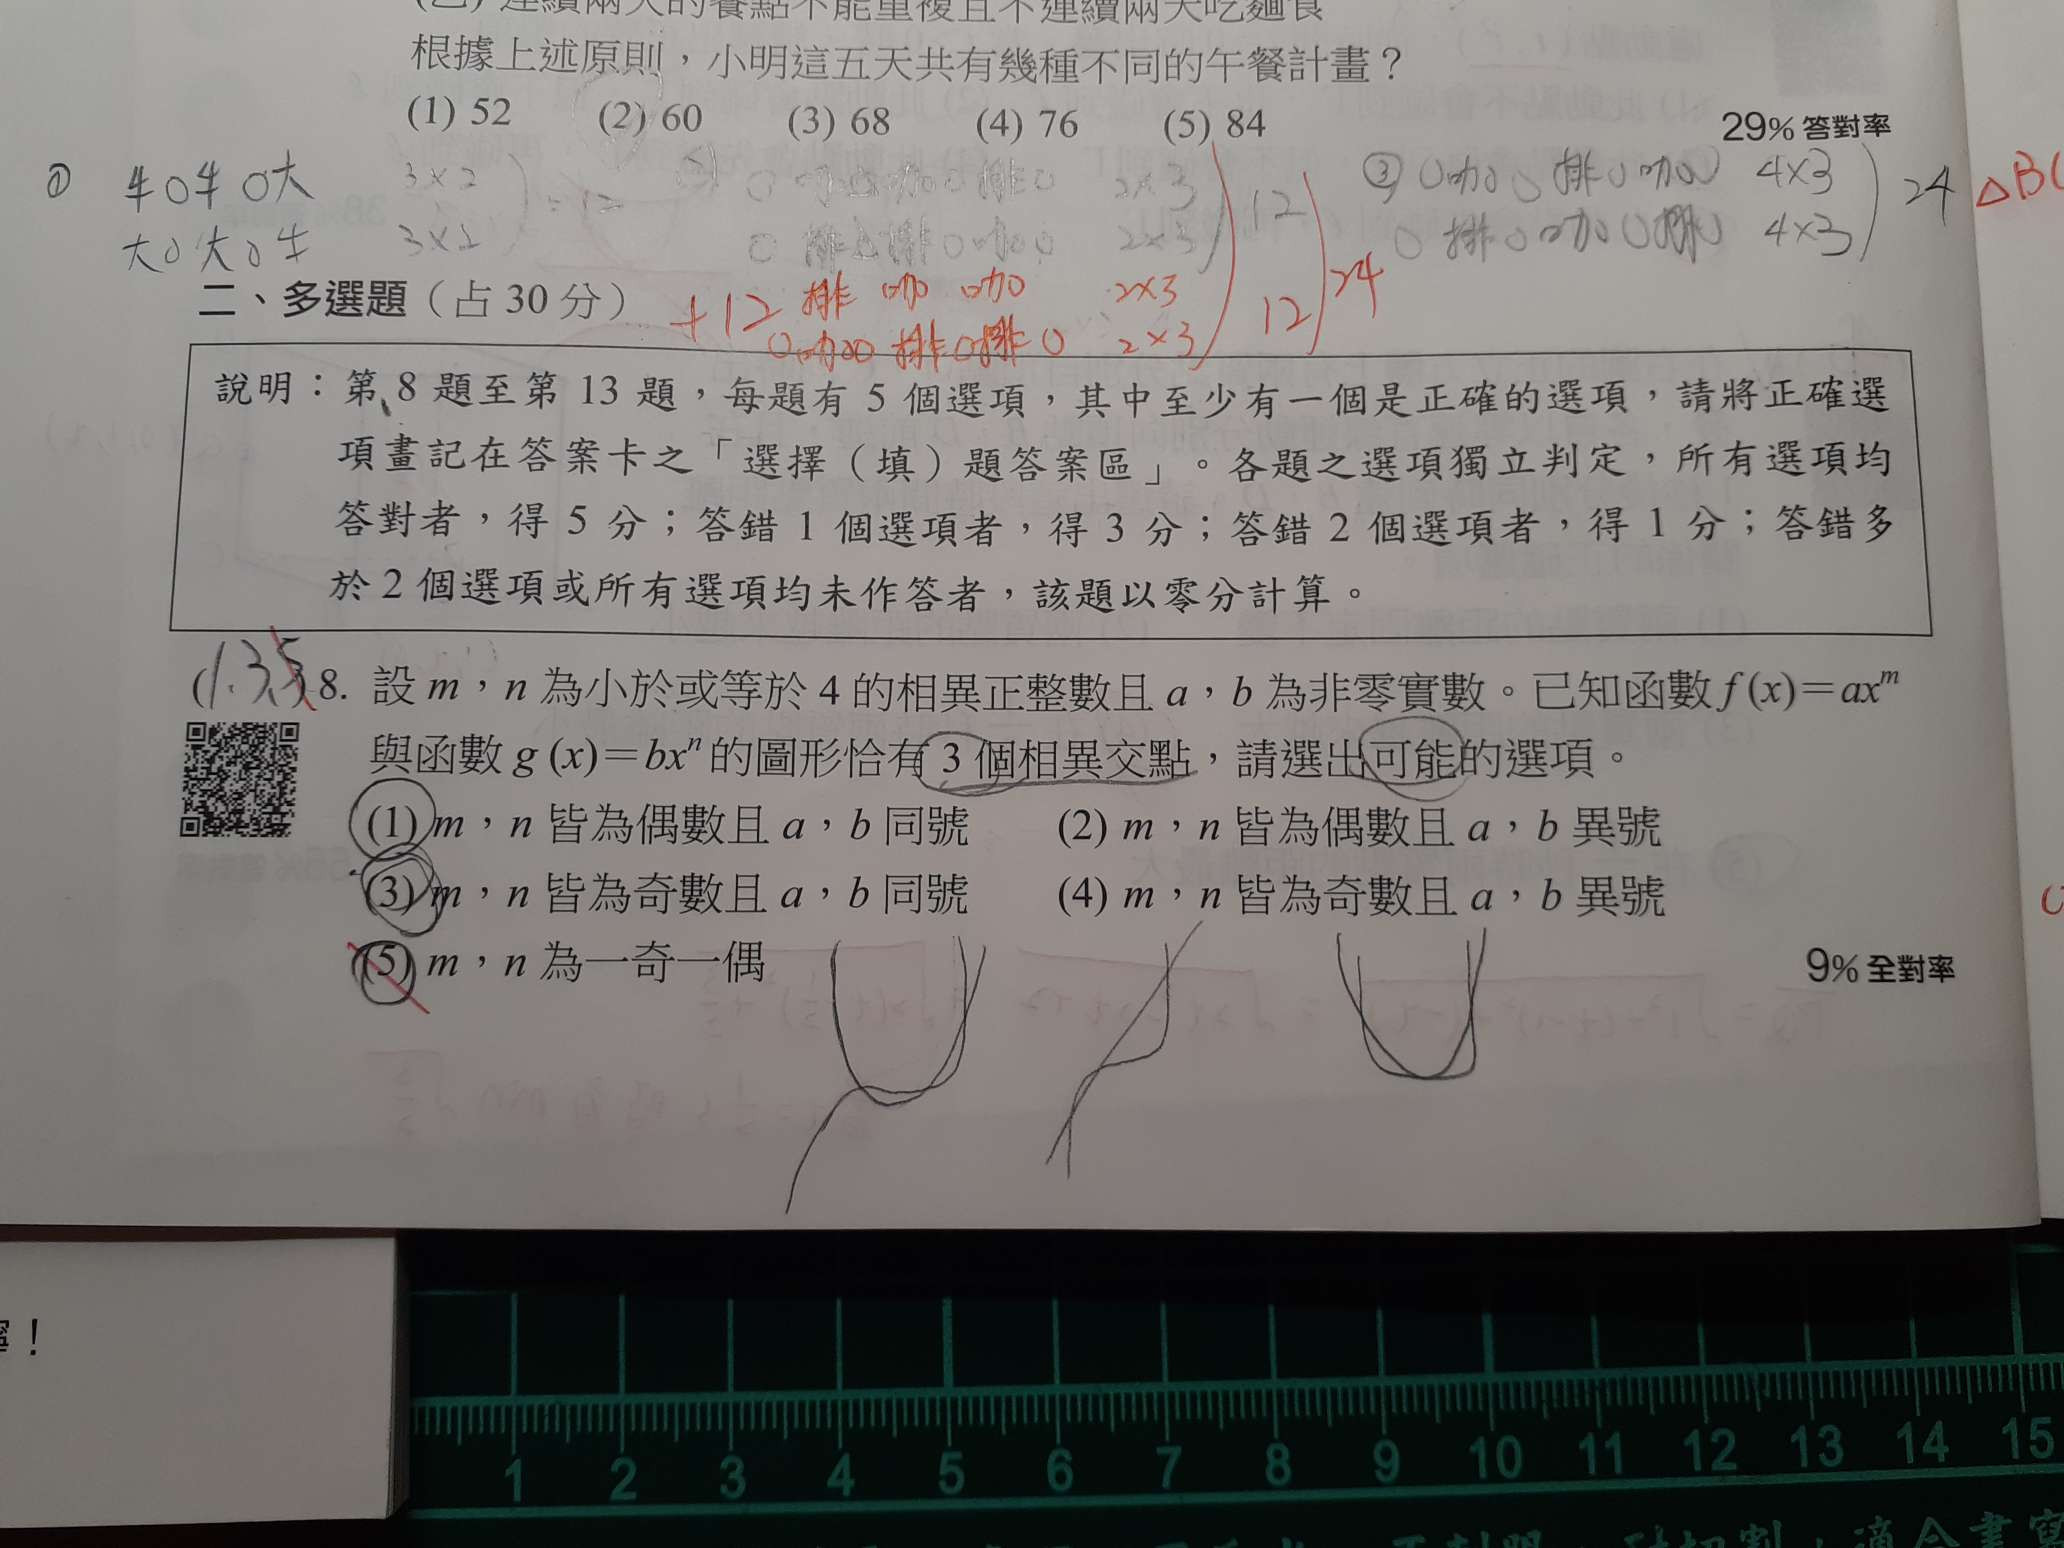 (乙) 連續兩天的餐點不能重複且不連續兩天吃麵食
根據上述原則，小明這五天共有幾種不同的午餐計畫？
(1) 52 (2) 60 (3) 68 (4) 76 (5) 84
29% 答對率
① 牛0牛0大 3×2 )=12
大0大0牛 3×2
2×3 ) 12
2×3
③ 0咖0排0咖0 4×3 ) 24
0排0咖0排0 4×3
△BC
+12 排 咖 咖 2×3
0咖0排0排0 2×3 ) 12 ) 24
二、多選題（占 30 分）
說明：第 8 題至第 13 題，每題有 5 個選項，其中至少有一個是正確的選項，請將正確選
項畫記在答案卡之「選擇（填）題答案區」。各題之選項獨立判定，所有選項均
答對者，得 5 分；答錯 1 個選項者，得 3 分；答錯 2 個選項者，得 1 分；答錯多
於 2 個選項或所有選項均未作答者，該題以零分計算。
(1.3.5) 8. 設 m，n 為小於或等於 4 的相異正整數且 a，b 為非零實數。已知函數 f (x)＝axᵐ
與函數 g (x)＝bxⁿ 的圖形恰有 3 個相異交點，請選出可能的選項。
(1) m，n 皆為偶數且 a，b 同號 (2) m，n 皆為偶數且 a，b 異號
(3) m，n 皆為奇數且 a，b 同號 (4) m，n 皆為奇數且 a，b 異號
(5) m，n 為一奇一偶
9% 全對率
！
1 2 3 4 5 6 7 8 9 10 11 12 13 14 15